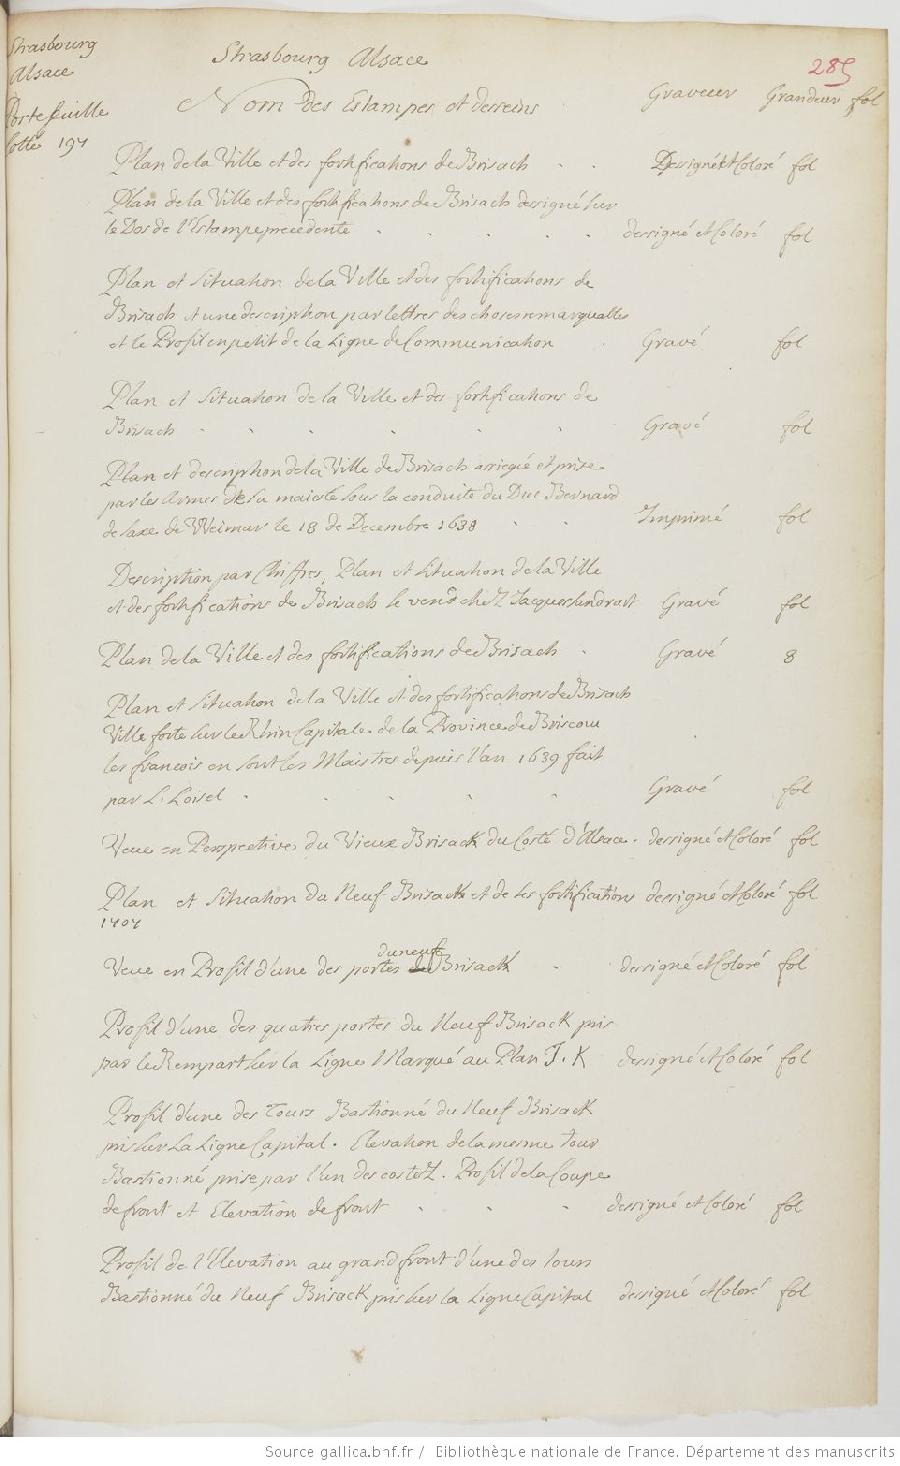 Strasbourg
Alsace
Portefeuille
cotté 197
Strasbourg Alsace
285
Nom des Estampes et desseins Graveur Grandeur fol
Plan de la Ville et des fortifications de Brisach Dessigné et Coloré fol
Plan de la Ville et des fortifications de Brisach dessigné sur
le Dos de l'Estampe precedente dessigné et Coloré fol
Plan et situation de la Ville et des fortifications de
Brisach et une description par lettres des choses remarquables
et le Profil en petit de la Ligne de Communication Gravé fol
Plan et situation de la Ville et des fortifications de
Brisach Gravé fol
Plan et description de la Ville de Brisach assiegée et prise
par les Armes de sa maiesté sous la conduite du Duc Bernard
de saxe de Weimar le 18 de Decembre 1638 Imprimé fol
Description par Chiffres, Plan et situation de la Ville
et des fortifications de Brisach se vend chez Jacques sandrart Gravé fol
Plan de la Ville et des fortifications de Brisach Gravé 8
Plan et situation de la Ville et des fortifications de Brisach
Ville forte sur le Rhin Capitale de la Province de Briscou
les francois en sont les Maistres depuis l'an 1639 fait
par L. Loisel Gravé fol
Veue en Perspective du Vieux Brisack du Costé d'Alsace. dessigné et Coloré fol
Plan et Situation du Neuf Brisack et de ses fortifications dessigné et Coloré fol
1707
Veue en Profil d'une des portes du neuf Brisack dessigné et Coloré fol
Profil d'une des quatres portes du Neuf Brisack pris
par le Rempart sur la Ligne Marqué au Plan J. K dessigné et Coloré fol
Profil d'une des Tours Bastionné du Neuf Brisack
pris sur La Ligne Capital. Elevation de la mesme Tour
Bastionné prise par l'un des costez. Profil de la Coupe
de front et Elevation de front dessigné et Coloré fol
Profil de l'Elevation au grand front d'une des tours
Bastionné du Neuf Brisack pris sur la Ligne Capital dessigné et Coloré fol
Source gallica.bnf.fr / Bibliothèque nationale de France. Département des manuscrits